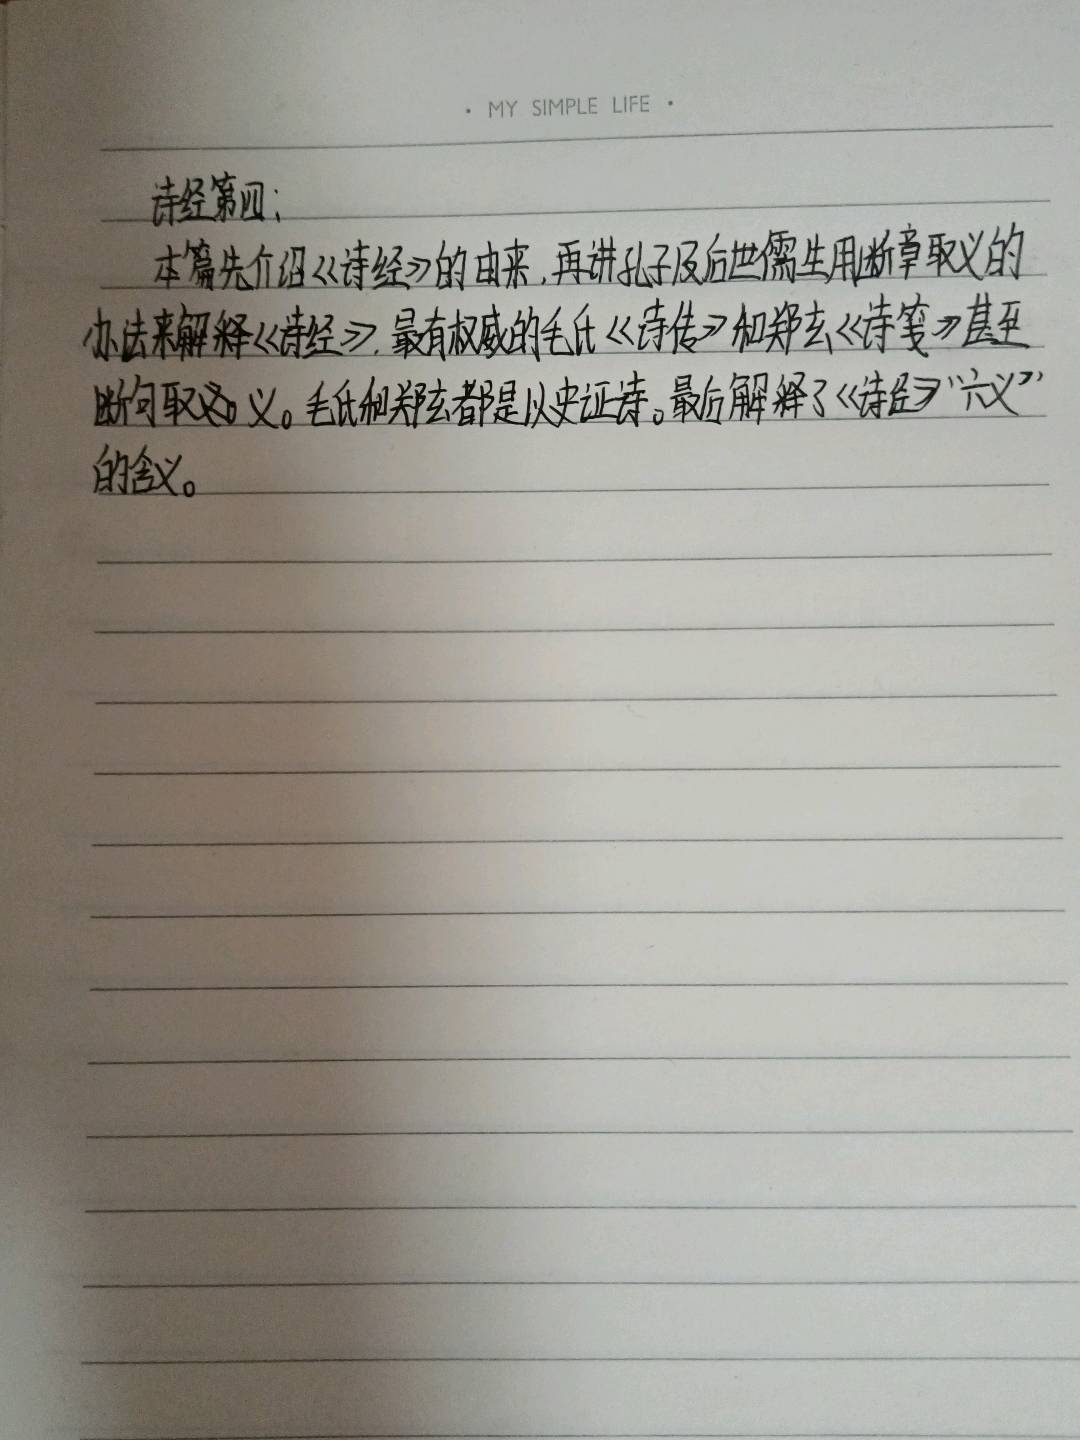 · MY SIMPLE LIFE ·
诗经第四:
本篇先介绍《诗经》的由来,再讲孔子及后世儒生用断章取义的
办法来解释《诗经》,最有权威的毛氏《诗传》和郑玄《诗笺》甚至
断句取义。毛氏和郑玄都是以史证诗。最后解释了《诗经》“六义”
的含义。